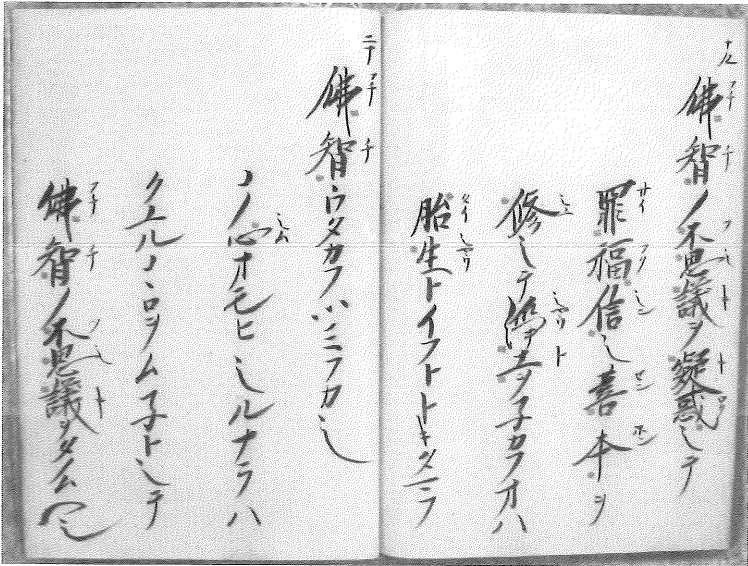 十九
佛智ノ不思議ヲ疑惑シテ
罪福信シ善本ヲ
修シテ淨土ヲ子カフオハ
胎生トイフトトキタマフ
二十
佛智ウタカフツミフカシ
コノ心オモヒシルナラハ
クユルコヽロヲムネトシテ
佛智ノ不思議ヲタノムヘシ